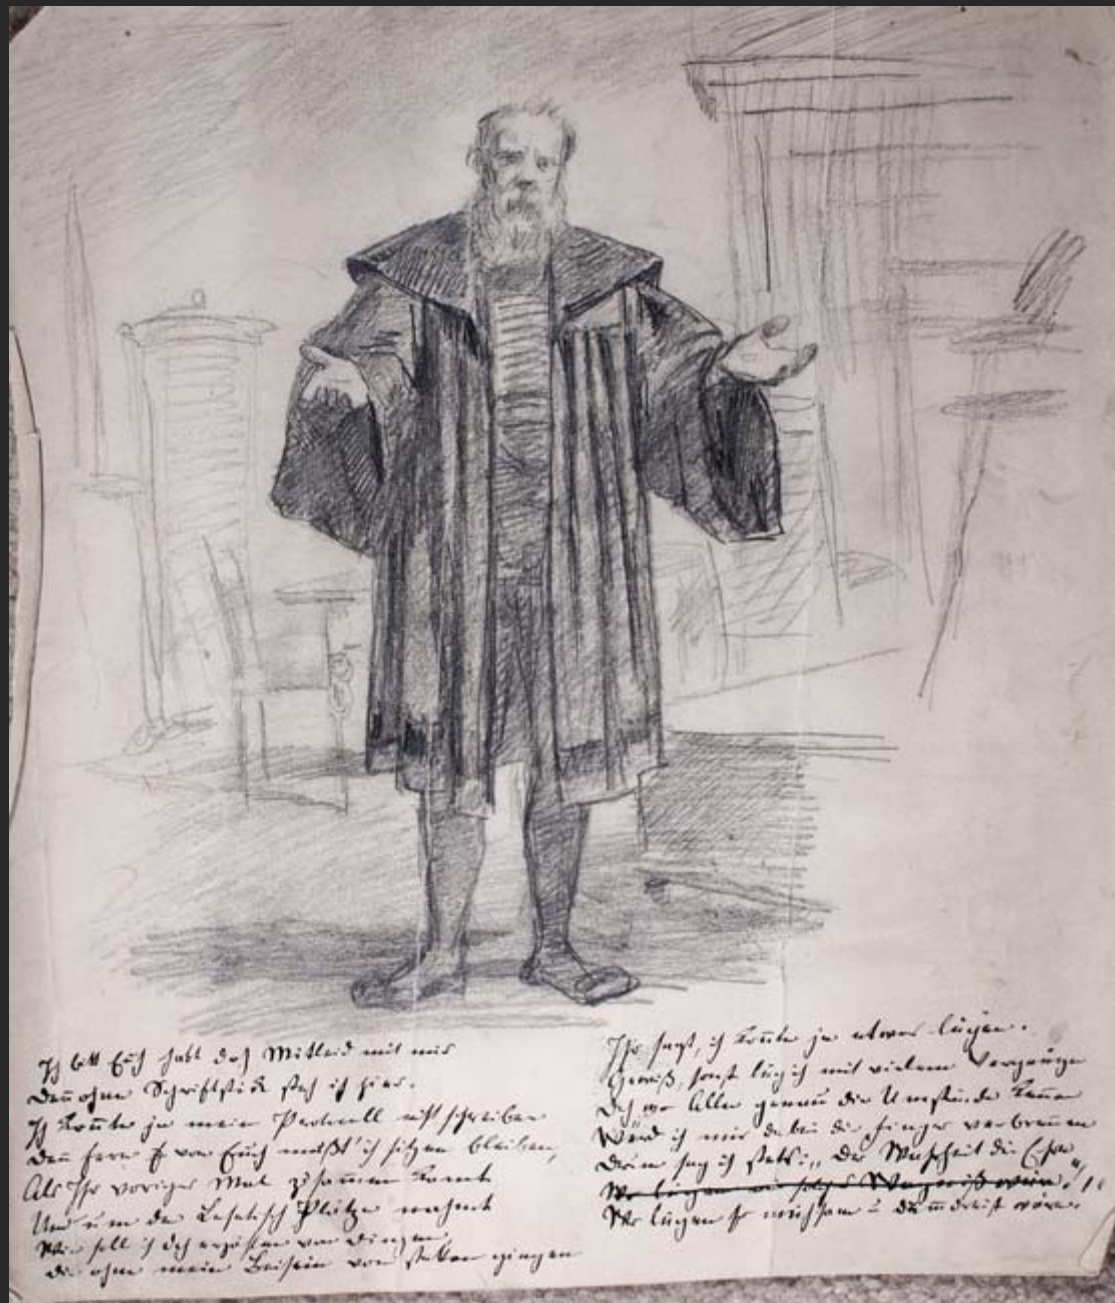 Ich bitt Euch habt doch Mitleid mit mir
Denn ohne Schriftstück steh ich hier.
Ich konnte ja mein Protocoll nicht schreiben
Denn fern von Euch mußt' ich sitzen bleiben,
Als Ihr voriges Mal zusammen kamt
Und um den Lesetisch Plätze nahmt
Wie soll ich doch erzählen von Dingen,
die ohne mein Beisein von statten gingen
Ihr sagt, ich könnte ja etwas lügen.
Gewiß, sonst lüg ich mit vielem Vergnügen
Doch wo Alle genau die Umstände kennen
Würd ich mir dabei die Finger verbrennen
Drum sag ich stets: „Der Wahrheit die Ehre"
Wo lügen ein solches Wagniß wäre."
Wo lügen so mühsam u dummdreist wäre.